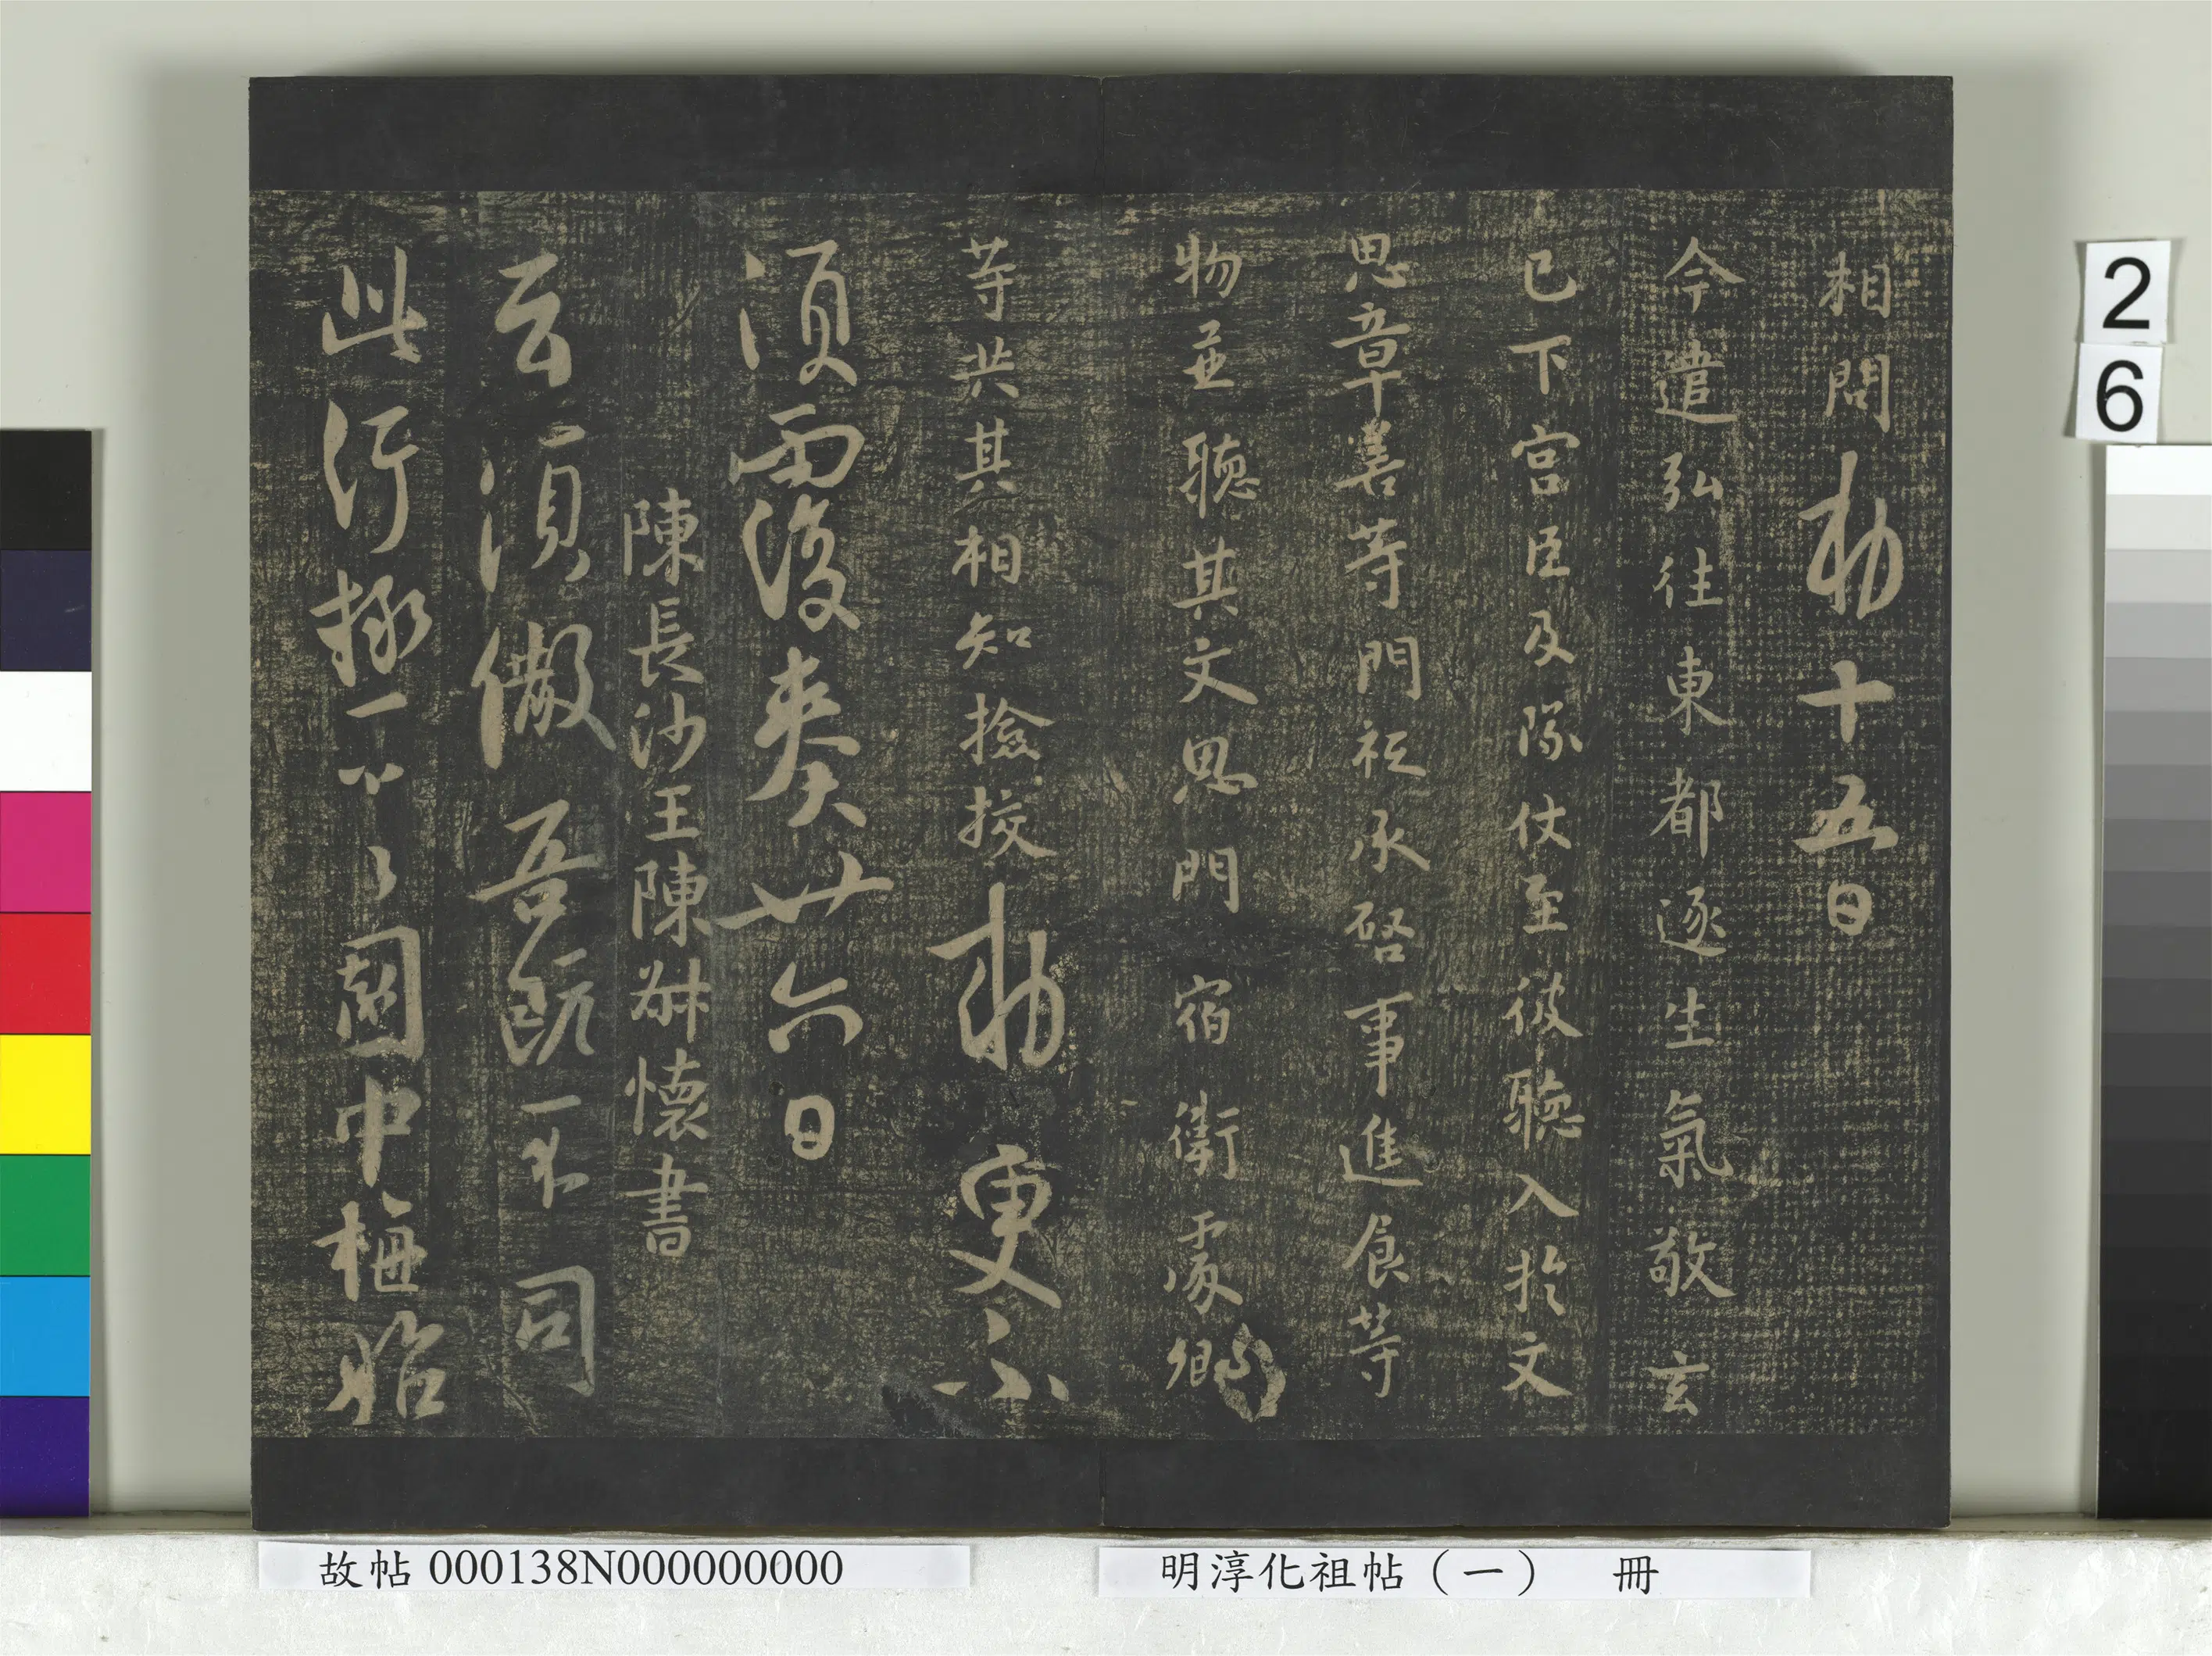 相問勅十五日
今遣弘往東都逐生氣敬玄
已下宮臣及隊仗至彼聽入於文
思章善等門祗承啓事進食等
物並聽其文思門宿衛處卿
等共其相知撿挍勅更不
須面復奏廿六日
陳長沙王陳叔懷書
云須儭吾旣不同
此行極不〻菌中梅始
2
6
故帖 000138N000000000
明淳化祖帖（一） 冊